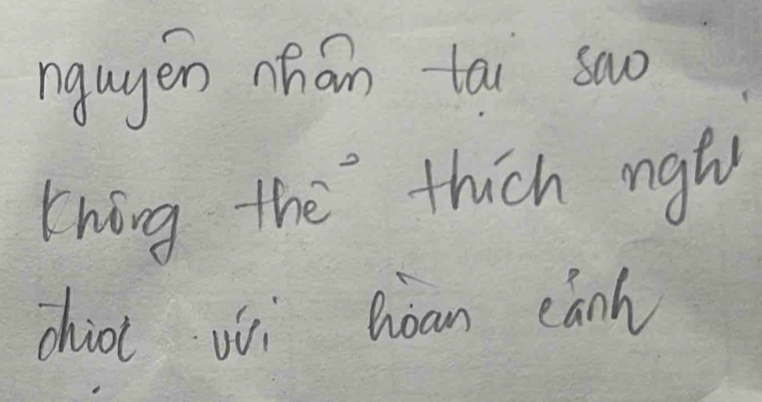 nguyên nhân tại sao
không thể thích nghi
được với hoàn cảnh